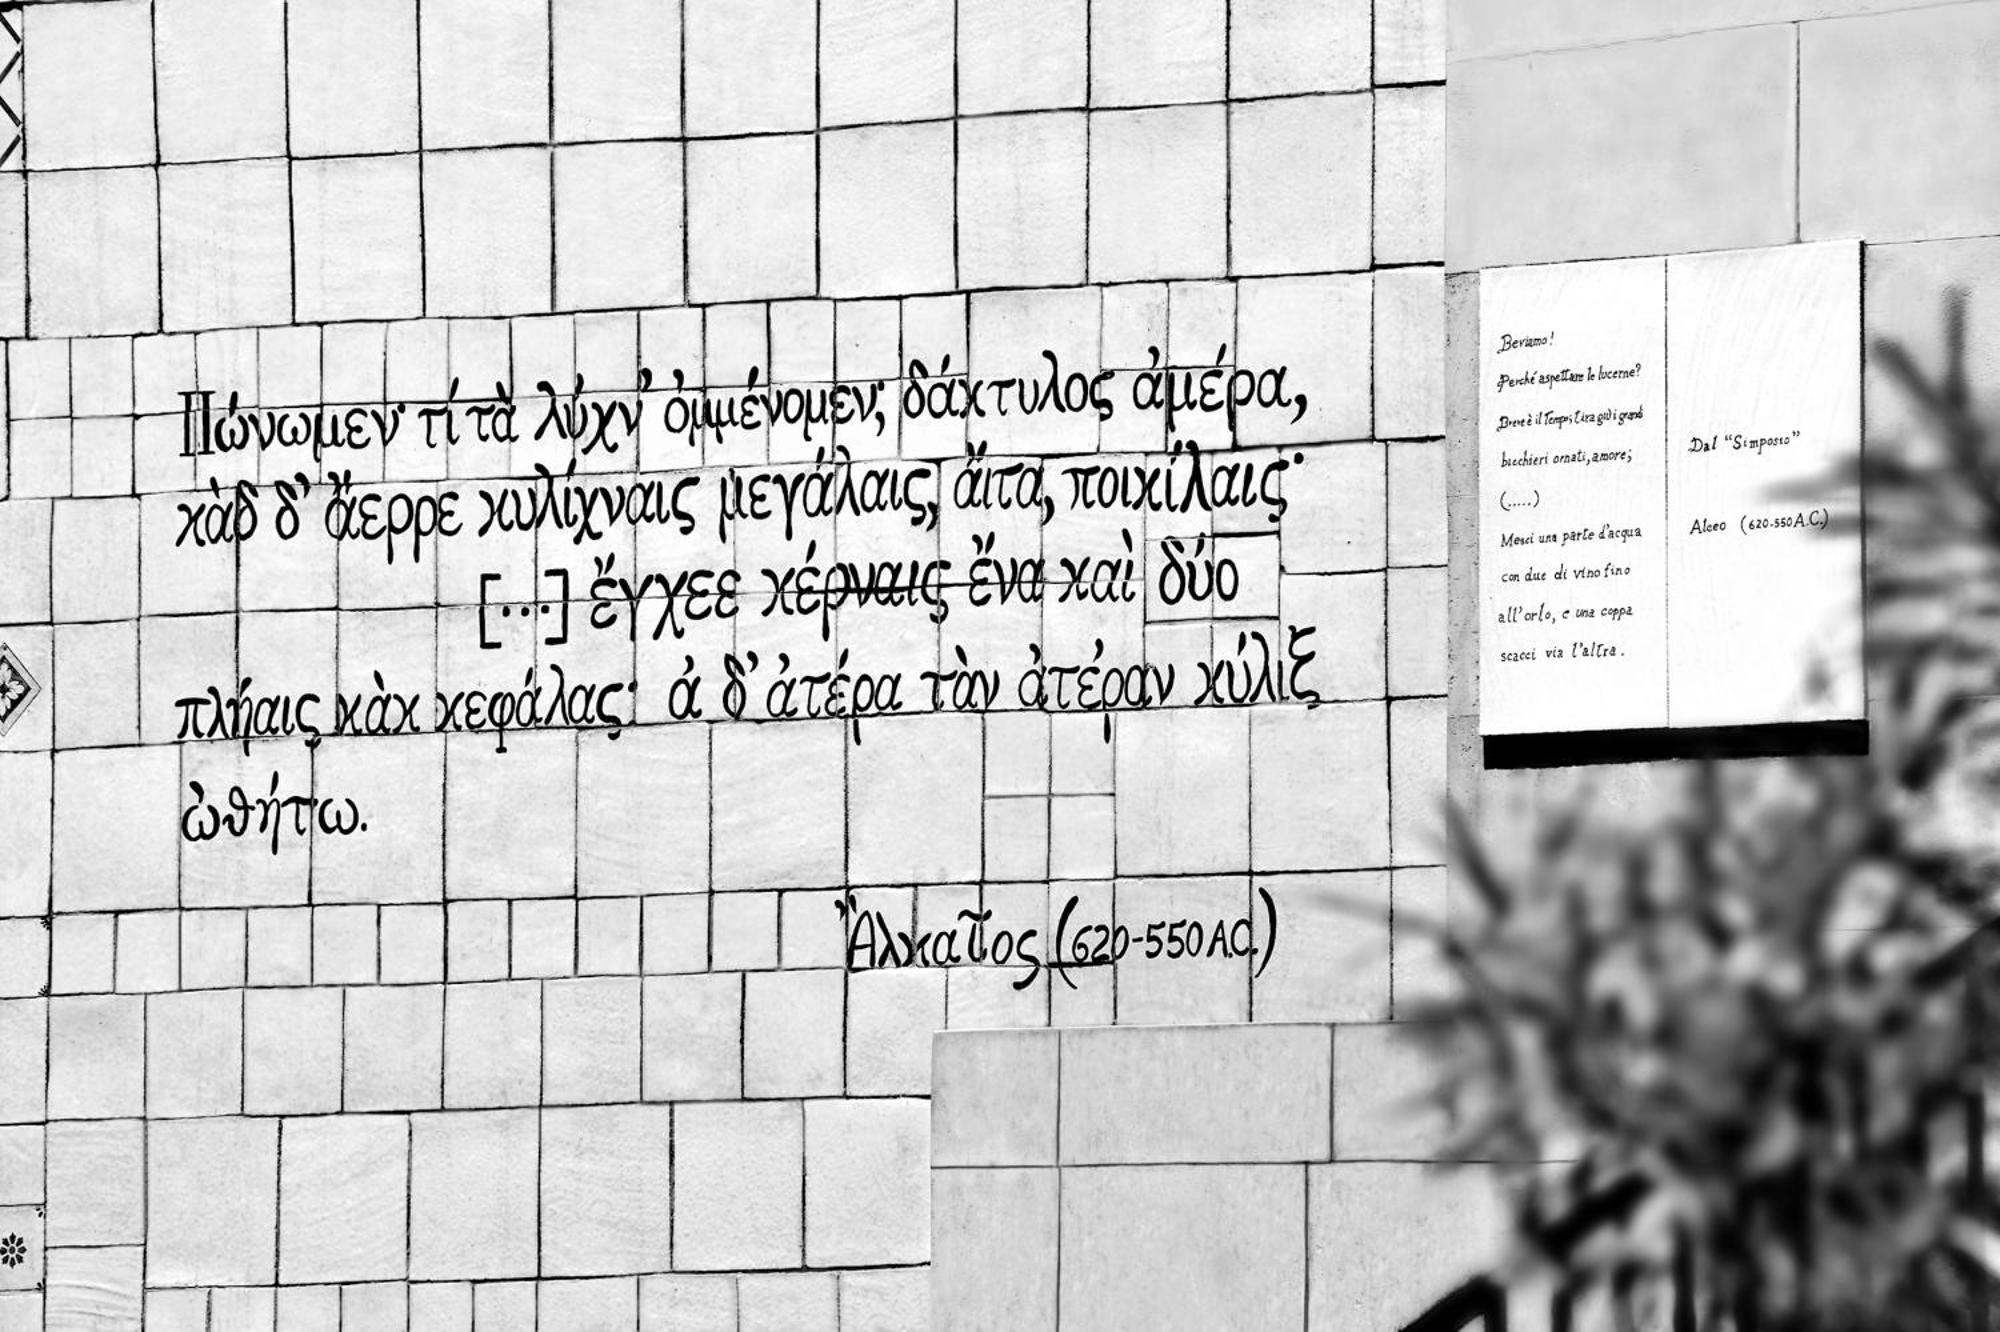 Πώνωμεν· τί τὰ λύχν' ὀμμένομεν; δάκτυλος ἀμέρα,
κὰδ δ' ἄερρε κυλίχναις μεγάλαις, ἄιτα, ποικίλαις·
[...] ἔγχεε κέρναις ἔνα καὶ δύο
πλήαις κὰκ κεφάλας· ἀ δ' ἀτέρα τὰν ἀτέραν κύλιξ
ὠθήτω.
Ἀλκαῖος (620-550 A.C.)
Beviamo!
Perché aspettare le lucerne?
Breve è il tempo; tira giù i grandi
bicchieri ornati, amore;
(.....)
Mesci una parte d'acqua
con due di vino fino
all'orlo, e una coppa
scacci via l'altra.
Dal "Simposio"
Alceo (620-550 A.C.)